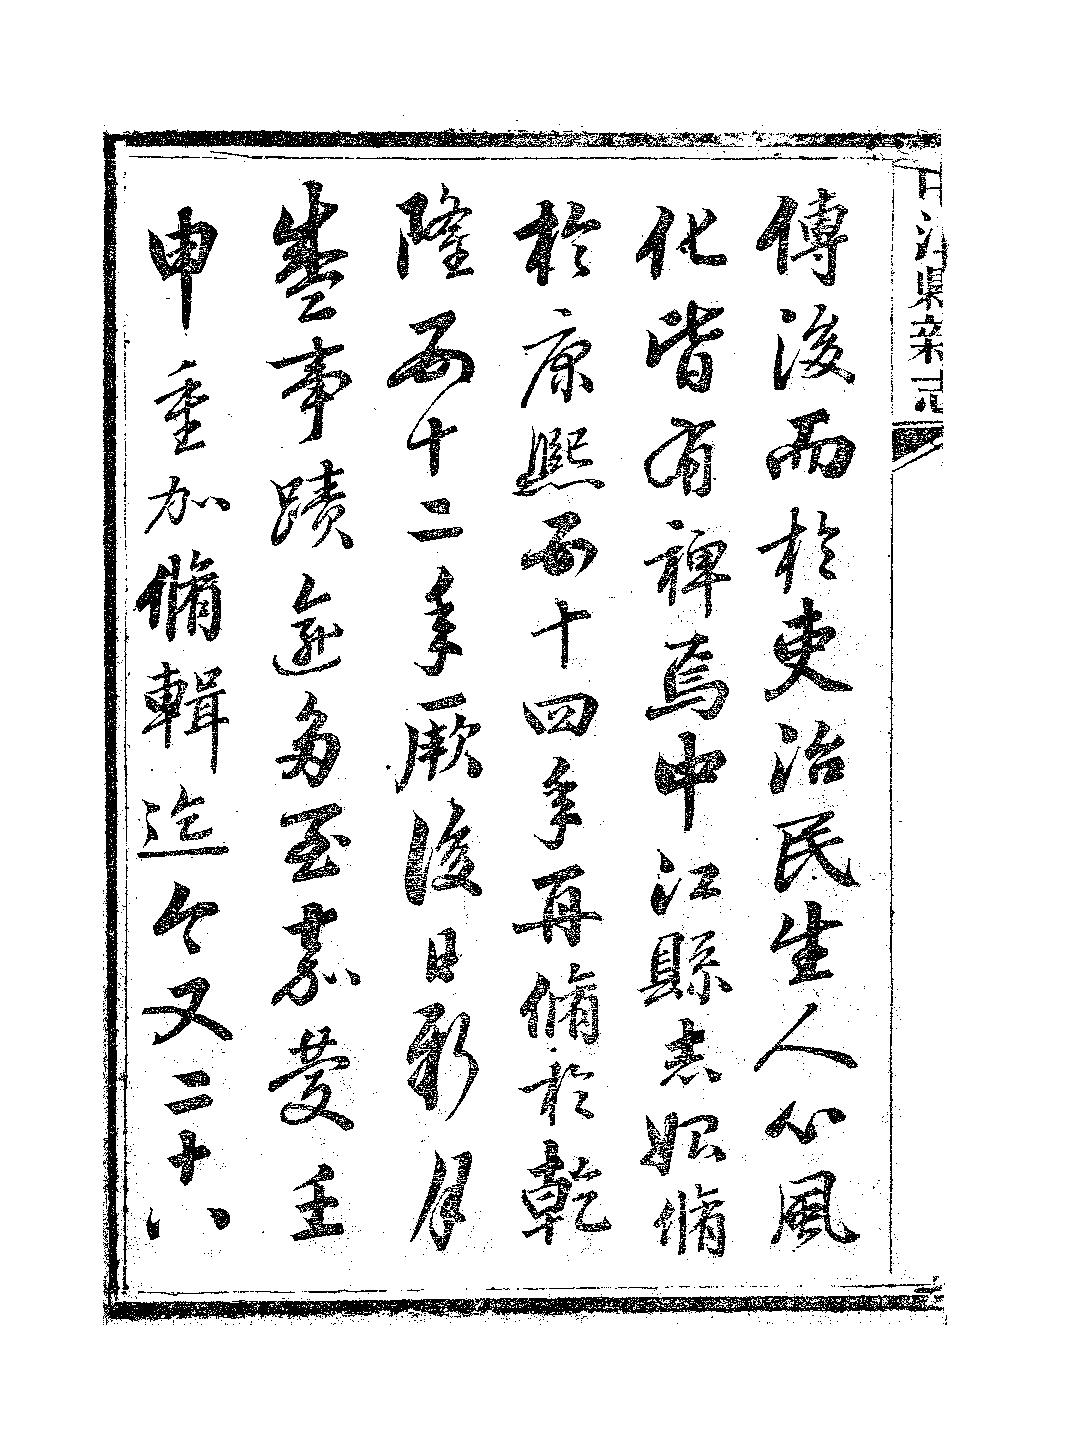 中江縣新志
傳後而於吏治民生人心風
化皆有裨焉中江縣志始脩
於康熙五十四年再脩於乾
隆五十二年厥後日新月
盛事蹟遞多至嘉慶壬
申重加脩輯迄今又二十八